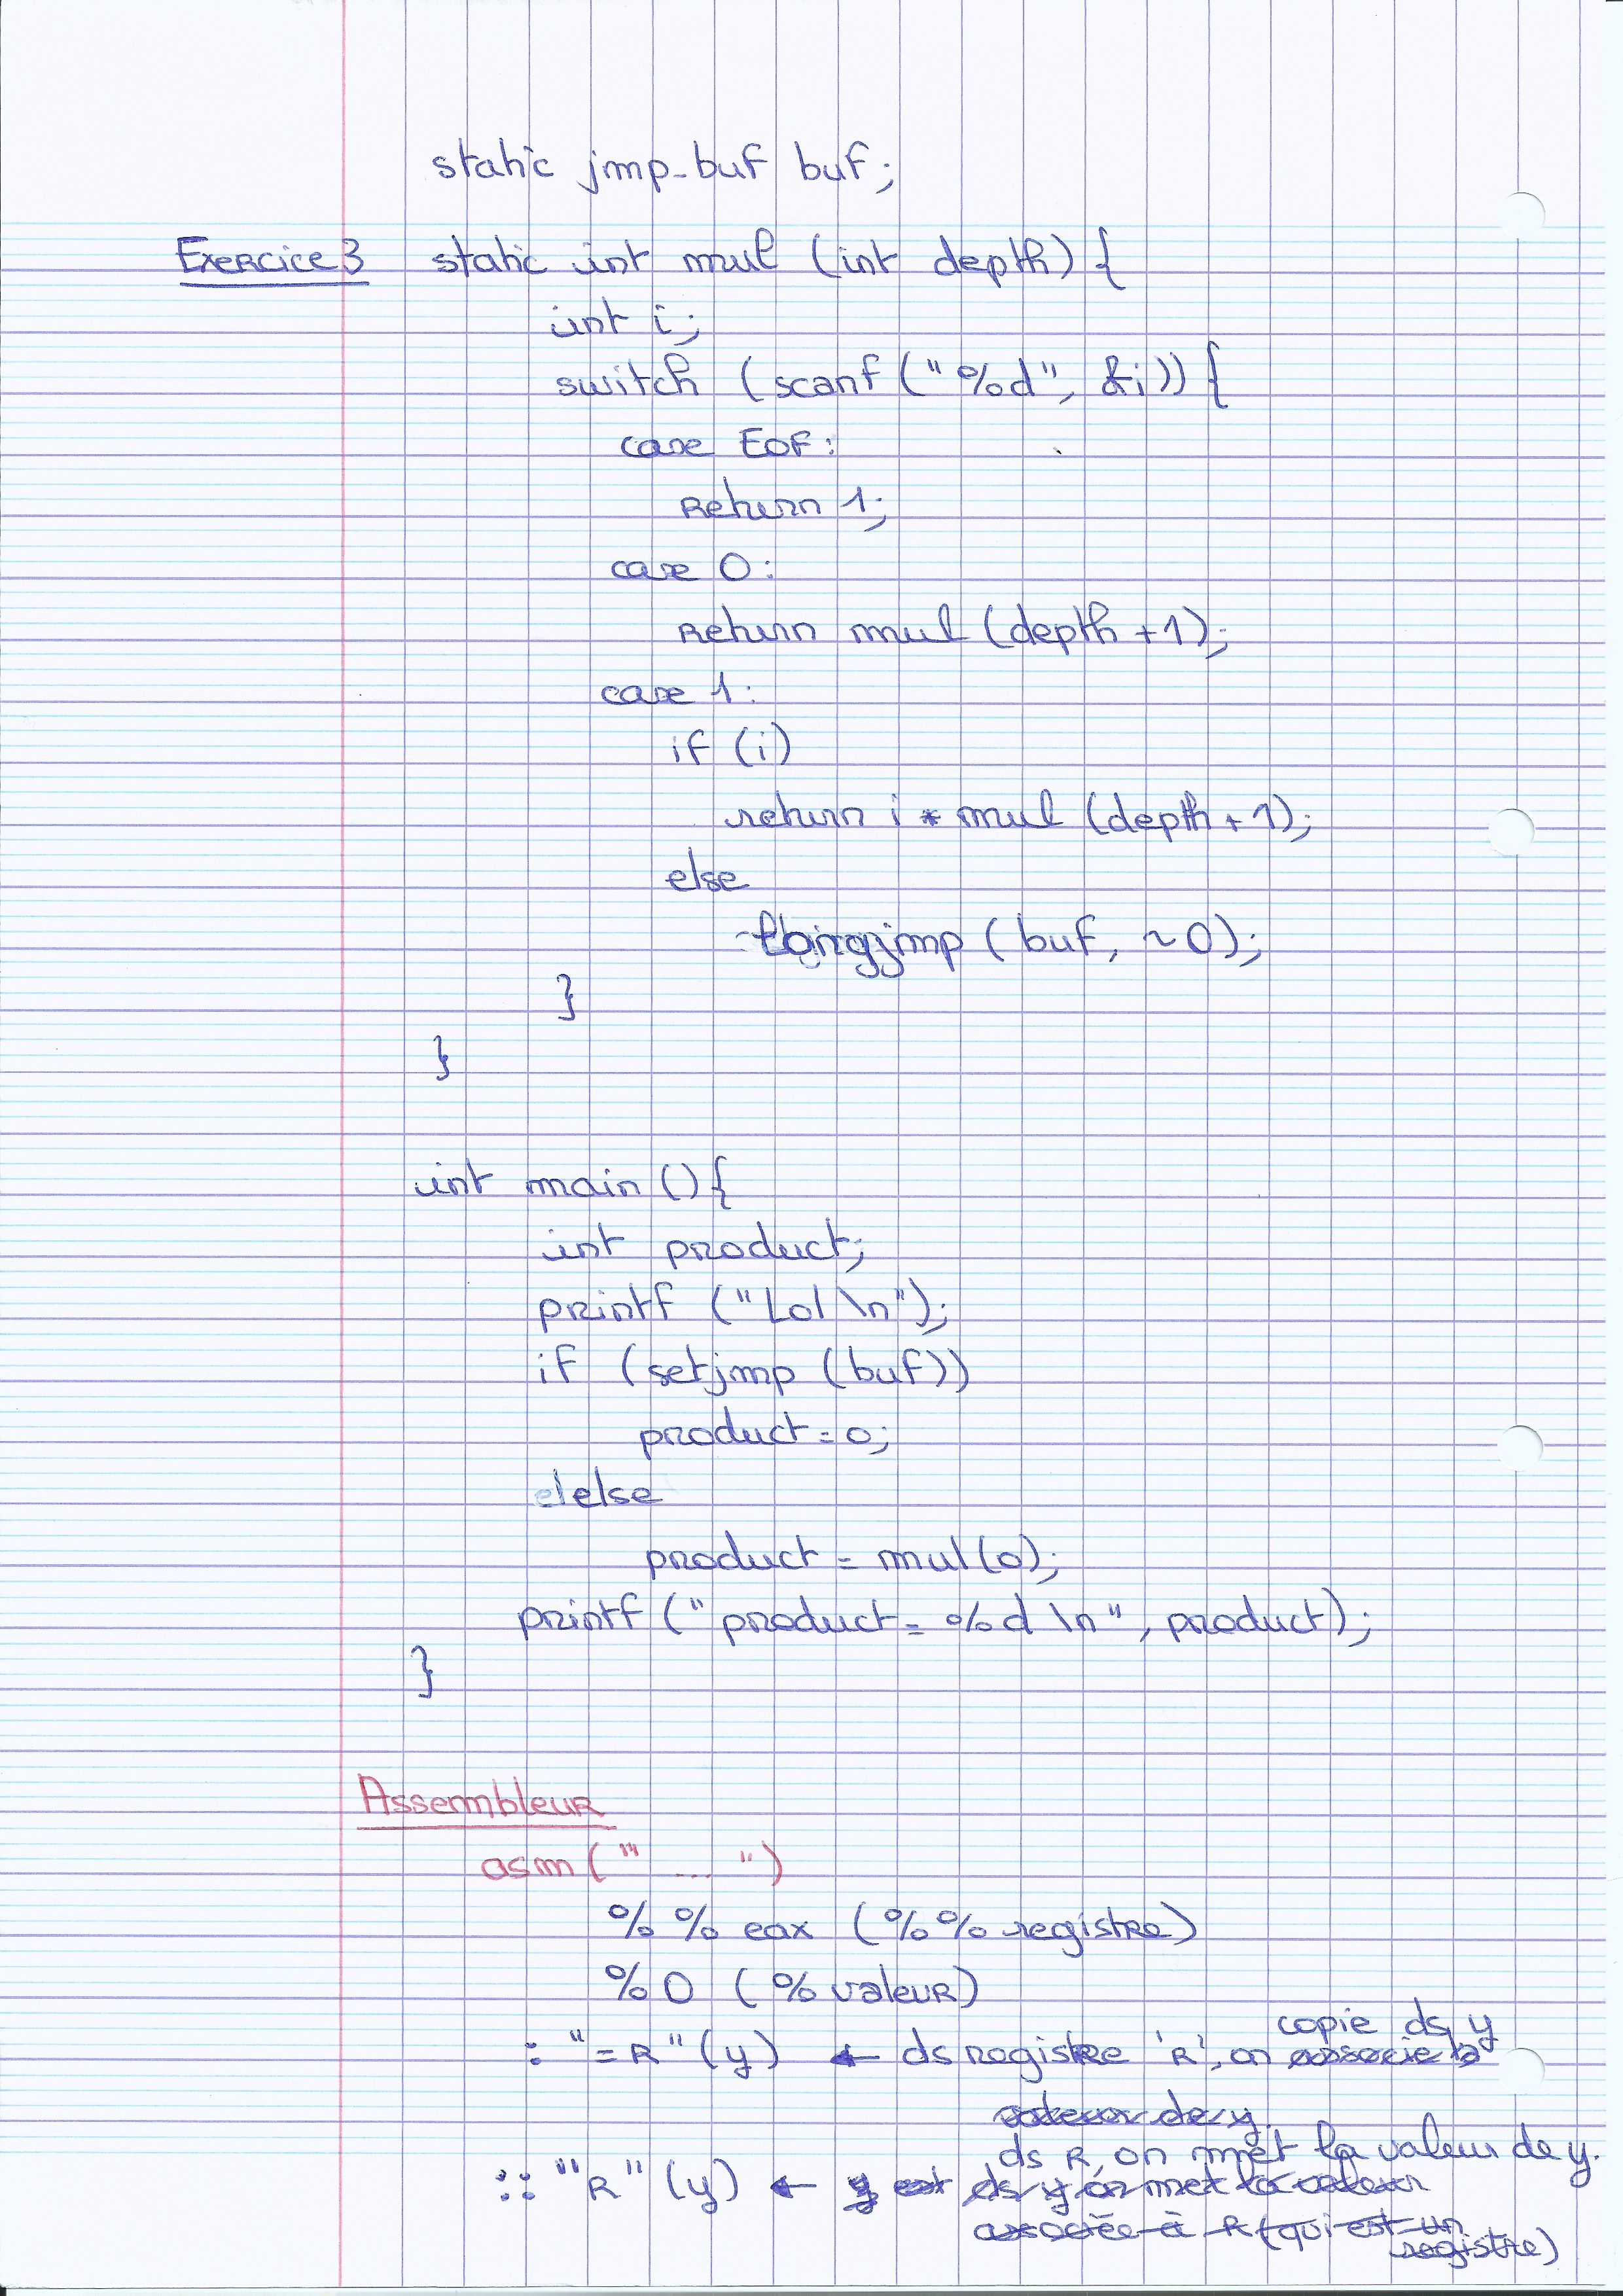 static jmp_buf buf;
Exercice 3 static int mul (int depth) {
int i;
switch (scanf ("%d", &i)) {
case EOF:
return 1;
case 0:
return mul (depth +1);
case 1:
if (i)
return i * mul (depth + 1);
else
longjmp (buf, ~0);
}
}
int main () {
int product;
printf ("Lol \n");
if (setjmp (buf))
product = 0;
else
product = mul(0);
printf ("product = %d \n", product);
}
Assembleur
asm (" ... ")
%% eax (%% registre)
%0 (% valeur)
copie ds y
: "=R" (y) ← ds registre 'R', on associe la
valeur de y.
ds R, on met la valeur de y.
:: "R" (y) ← y est ds y on met la valeur
associée à R (qui est un
registre)